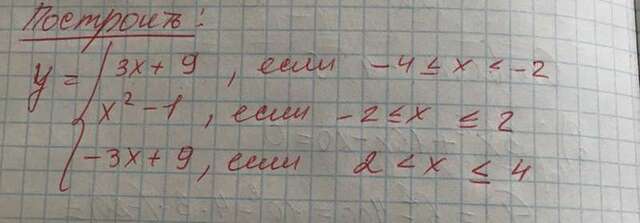 Построить:
y = { 3x + 9 , если -4 ≤ x ≤ -2
x² - 1 , если -2 ≤ x ≤ 2
-3x + 9, если 2 < x ≤ 4